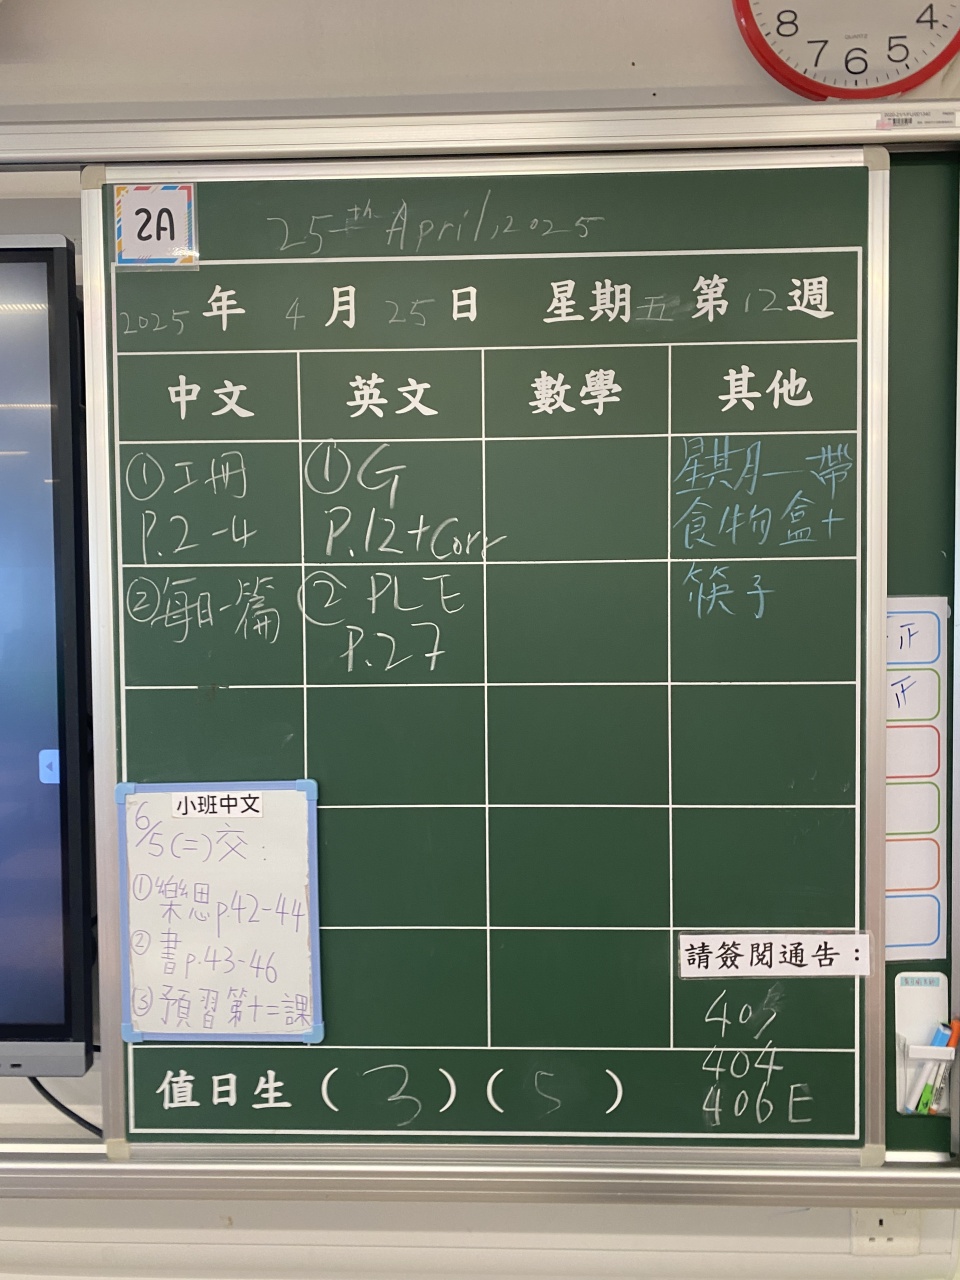 8 7 6 5 4
QUARTZ
2A
25th April, 2025
2025年 4月 25日 星期五 第12週
中文 英文 數學 其他
①工冊
P.2-4
①G
P.12+Corr
星期一帶
食物盒+
②每日一篇
②PLE
P.27
筷子
正
正
小班中文
6/5(二)交：
①樂思p.42-44
②書p.43-46
③預習第十二課
請簽閱通告：
404
406E
值日生（3）（5）